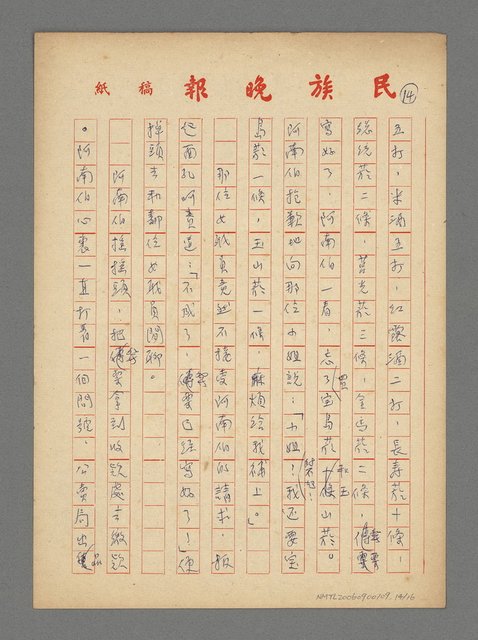 民族晚報稿紙
14
五打，米酒五打，紅露酒二打，長壽菸十條，
總統菸二條，莒光菸三條，金馬菸二條，傳票
寫好了，阿南伯一看，忘了買寶島菸和玉山菸。
阿南伯抱歉地向那位小姐說：「小姐！對不起！我還要寶
島菸一條，玉山菸一條，麻煩給我補上。」
那位女職員竟然不接受阿南伯的請求，扳
起面孔呵責道：「不成了，傳票已經寫好了！」便
掉頭去和鄰位女職員閒聊。
阿南伯搖搖頭，把傳票拿到收款處去繳款
。阿南伯心裏一直打着一個問號，公賣局出品
NMTL20060900109 14/16